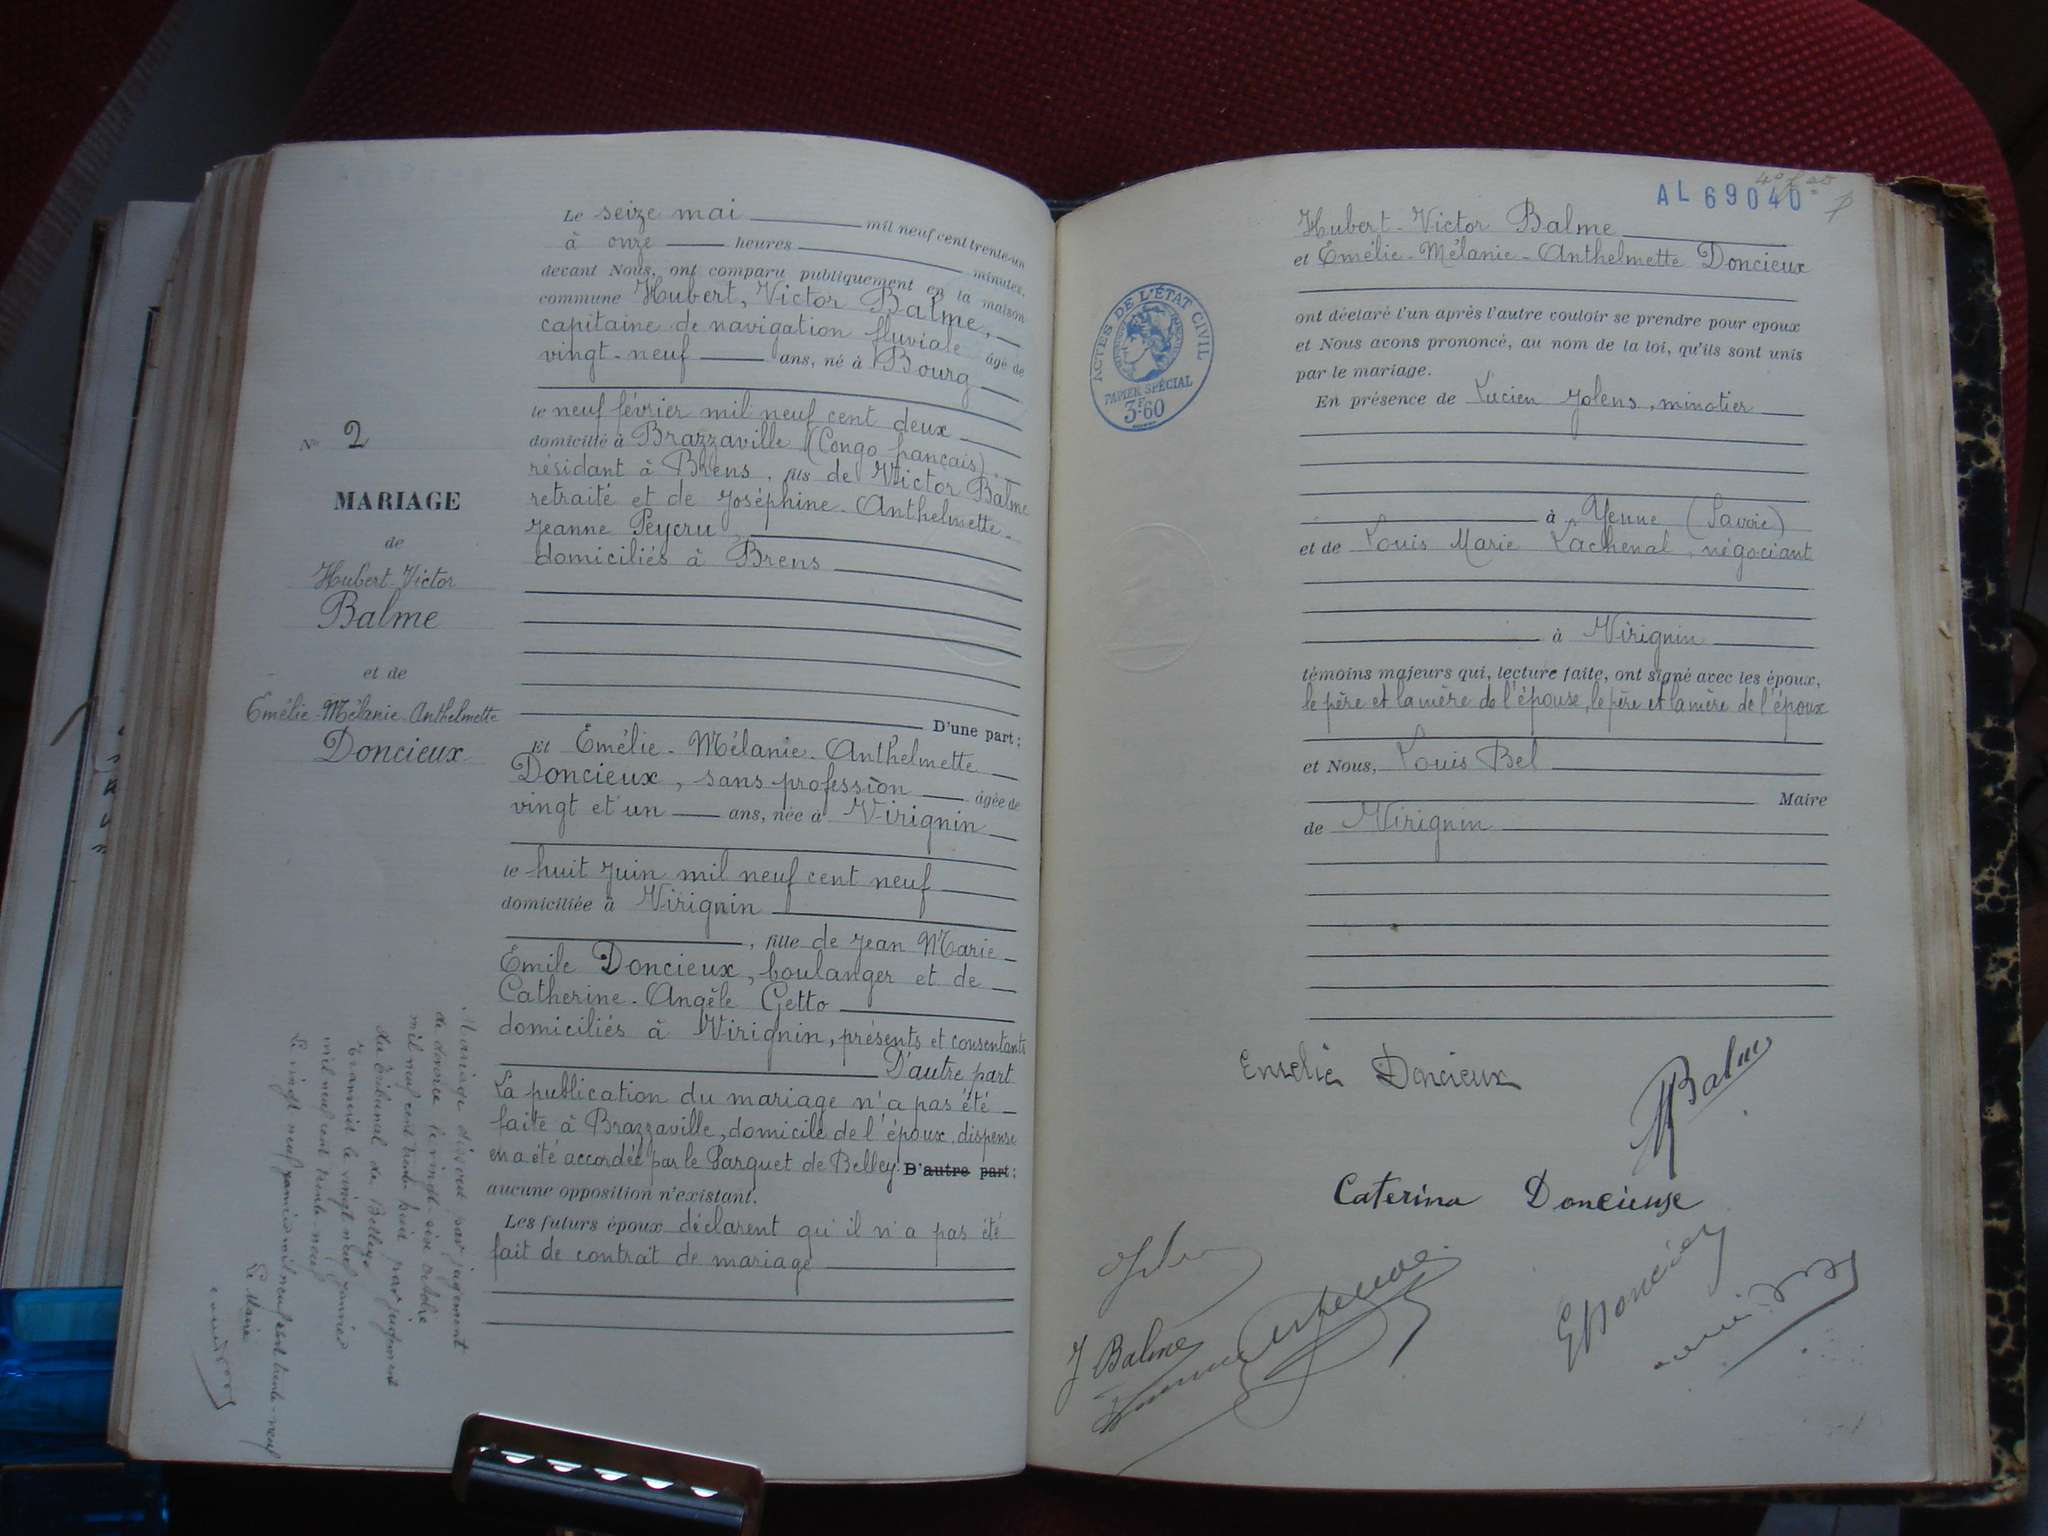 N° 2
MARIAGE
de
Hubert-Victor
Balme
et de
Emélie-Mélanie-Anthelmette
Doncieux
Mariage dissous par jugement
de divorce le vingt-six octobre
mil neuf cent trente huit par jugement
du tribunal de Belley
Transcrit le vingt neuf janvier
mil neuf cent trente-neuf
Le vingt neuf janvier mil neuf cent trente-neuf
Le Maire
Le seize mai mil neuf cent trente-un
à onze heures minutes,
devant Nous, ont comparu publiquement en la maison
commune Hubert, Victor Balme,
capitaine de navigation fluviale âgé de
vingt-neuf ans, né à Bourg
le neuf février mil neuf cent deux
domicilié à Brazzaville (Congo français),
résidant à Brens, fils de Victor Balme
retraité et de Joséphine-Anthelmette-
Jeanne Peycru
domiciliés à Brens
D'une part;
Et Emélie-Mélanie-Anthelmette
Doncieux, sans profession âgée de
vingt et un ans, née à Virignin
le huit juin mil neuf cent neuf
domiciliée à Virignin
, fille de Jean Marie
Emile Doncieux, boulanger et de
Catherine-Angèle Getto
domiciliés à Virignin, présents et consentants
D'autre part
La publication du mariage n'a pas été
faite à Brazzaville, domicile de l'époux, dispense
en a été accordée par le Parquet de Belley. D'autre part;
aucune opposition n'existant.
Les futurs époux déclarent qu'il n'a pas été
fait de contrat de mariage
AL 69040
ACTES DE L'ÉTAT CIVIL
PAPIER SPÉCIAL
3F60
Hubert-Victor Balme
et Emélie-Mélanie-Anthelmette Doncieux
ont déclaré l'un après l'autre vouloir se prendre pour époux
et Nous avons prononcé, au nom de la loi, qu'ils sont unis
par le mariage.
En présence de Lucien Jolens, minotier
à Yenne (Savoie)
et de Louis Marie Lachenal, négociant
à Virignin
témoins majeurs qui, lecture faite, ont signé avec les époux,
le père et la mère de l'épouse, le père et la mère de l'époux
et Nous, Louis Bel
Maire
de Virignin
Emélie Doncieux
Balme
Caterina Doncieuse
J Balme
E Doncieux